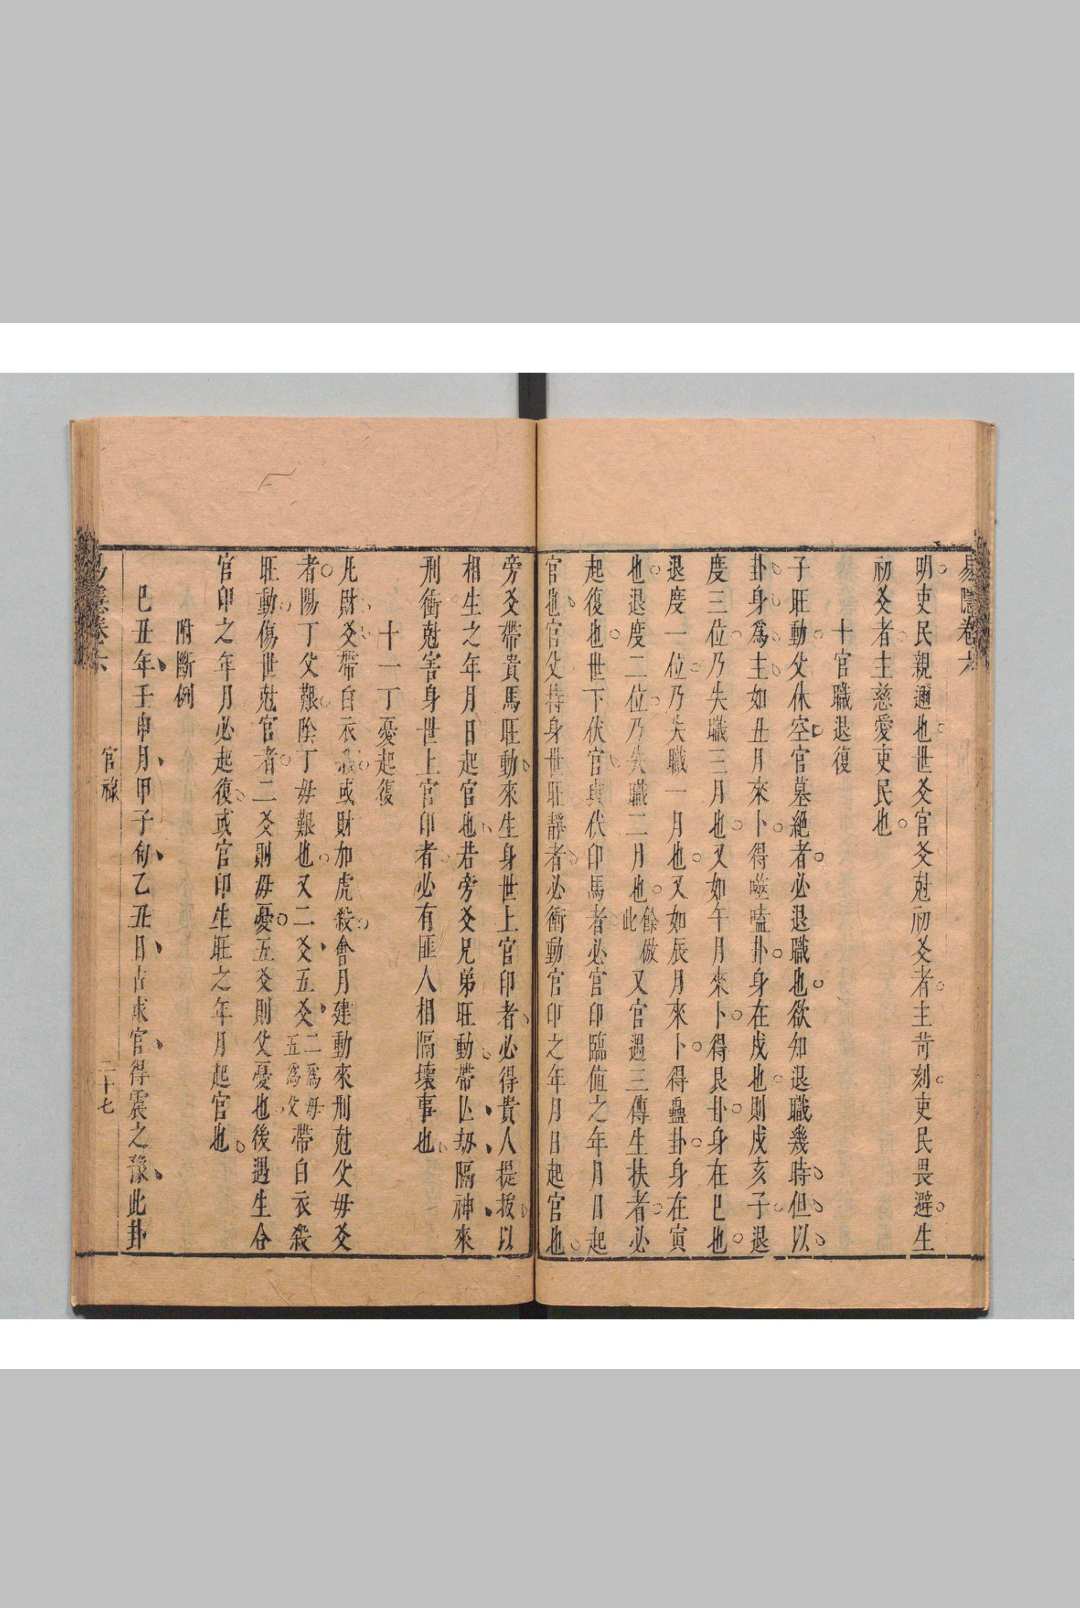 易隱卷六
明吏民親邇也世爻官爻尅初爻者主苛刻吏民畏避生
初爻者主慈愛吏民也
十官職退復
子旺動父休空官墓絕者必退職也欲知退職幾時但以
卦身為主如丑月來卜得噬嗑卦身在戌也則戌亥子退
度三位乃失職三月也又如午月來卜得艮卦身在巳也
退度一位乃失職一月也又如辰月來卜得蠱卦身在寅
也退度二位乃失職二月也餘倣此又官遇三傳生扶者必
起復也世下伏官與伏印馬者必官印臨值之年月日起
官也官父持身世旺靜者必衝動官印之年月日起官也
旁爻帶貴馬旺動來生身世上官印者必得貴人提拔以
相生之年月日起官也若旁爻兄弟旺動帶亾刼隔神來
刑衝尅害身世上官印者必有匪人相隔壞事也
十一丁憂起復
凡財爻帶白衣殺或財加虎殺會月建動來刑尅父母爻
者陽丁父艱陰丁母艱也又二爻五爻二為母五為父帶白衣殺
旺動傷世尅官者二爻則母憂五爻則父憂也後遇生合
官印之年月必起復或官印生旺之年月起官也
附斷例
己丑年壬申月甲子旬乙丑日占求官得震之豫此卦
卷六
官祿
二十七